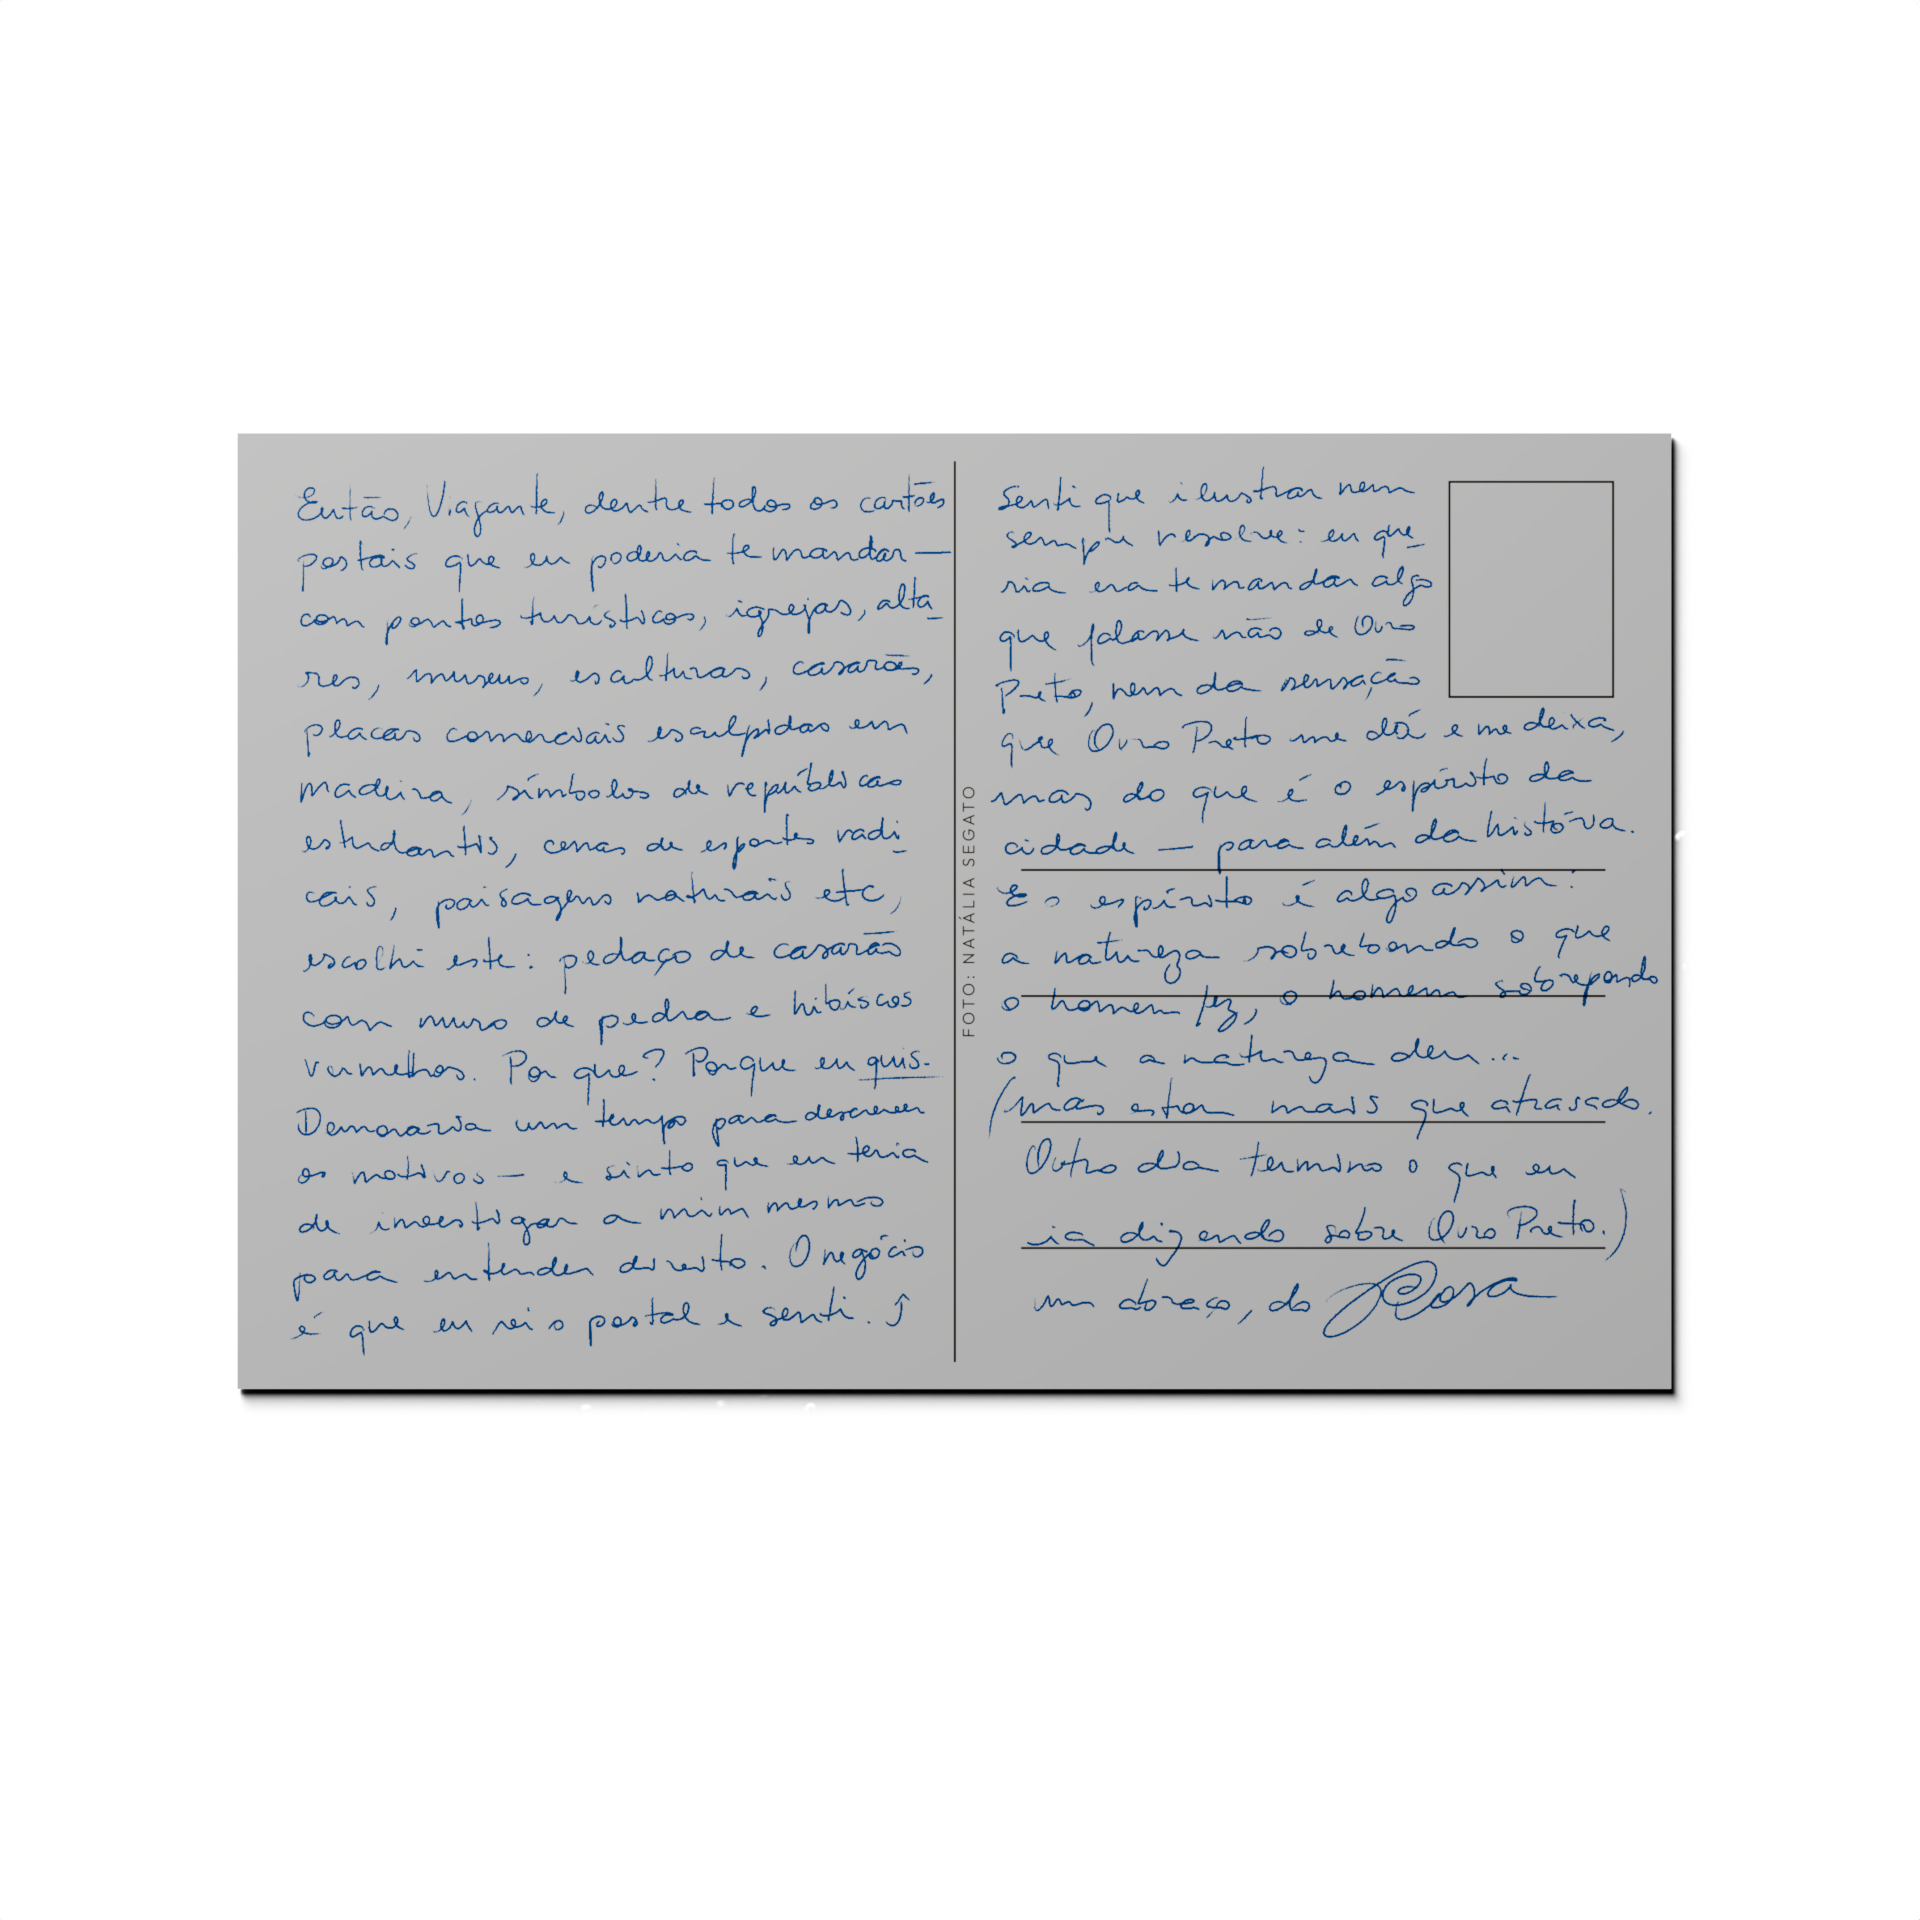 Então, Viajante, dentre todos os cartões
postais que eu poderia te mandar —
com pontos turísticos, igrejas, alta-
res, museus, esculturas, casarões,
placas comerciais esculpidas em
madeira, símbolos de repúblicas
estudantis, cenas de esportes radi-
cais, paisagens naturais etc,
escolhi este: pedaço de casarão
com muro de pedra e hibíscos
vermelhos. Por que? Porque eu quis.
Demoraria um tempo para descrever
os motivos — e sinto que eu teria
de investigar a mim mesmo
para entender direito. O negócio
é que eu vi o postal e senti.
FOTO: NATÁLIA SEGATO
Senti que ilustrar nem
sempre resolve: eu que-
ria era te mandar algo
que falasse não de Ouro
Preto, nem da sensação
que Ouro Preto me dá e me deixa,
mas do que é o espírito da
cidade — para além da história.
E o espírito é algo assim:
a natureza sobrebondo o que
o homem fez, o homem sobrepondo
o que a natureza deu...
(mas estou mais que atrasado.
Outro dia termino o que eu
ia dizendo sobre Ouro Preto.)
um abraço, do Rosa